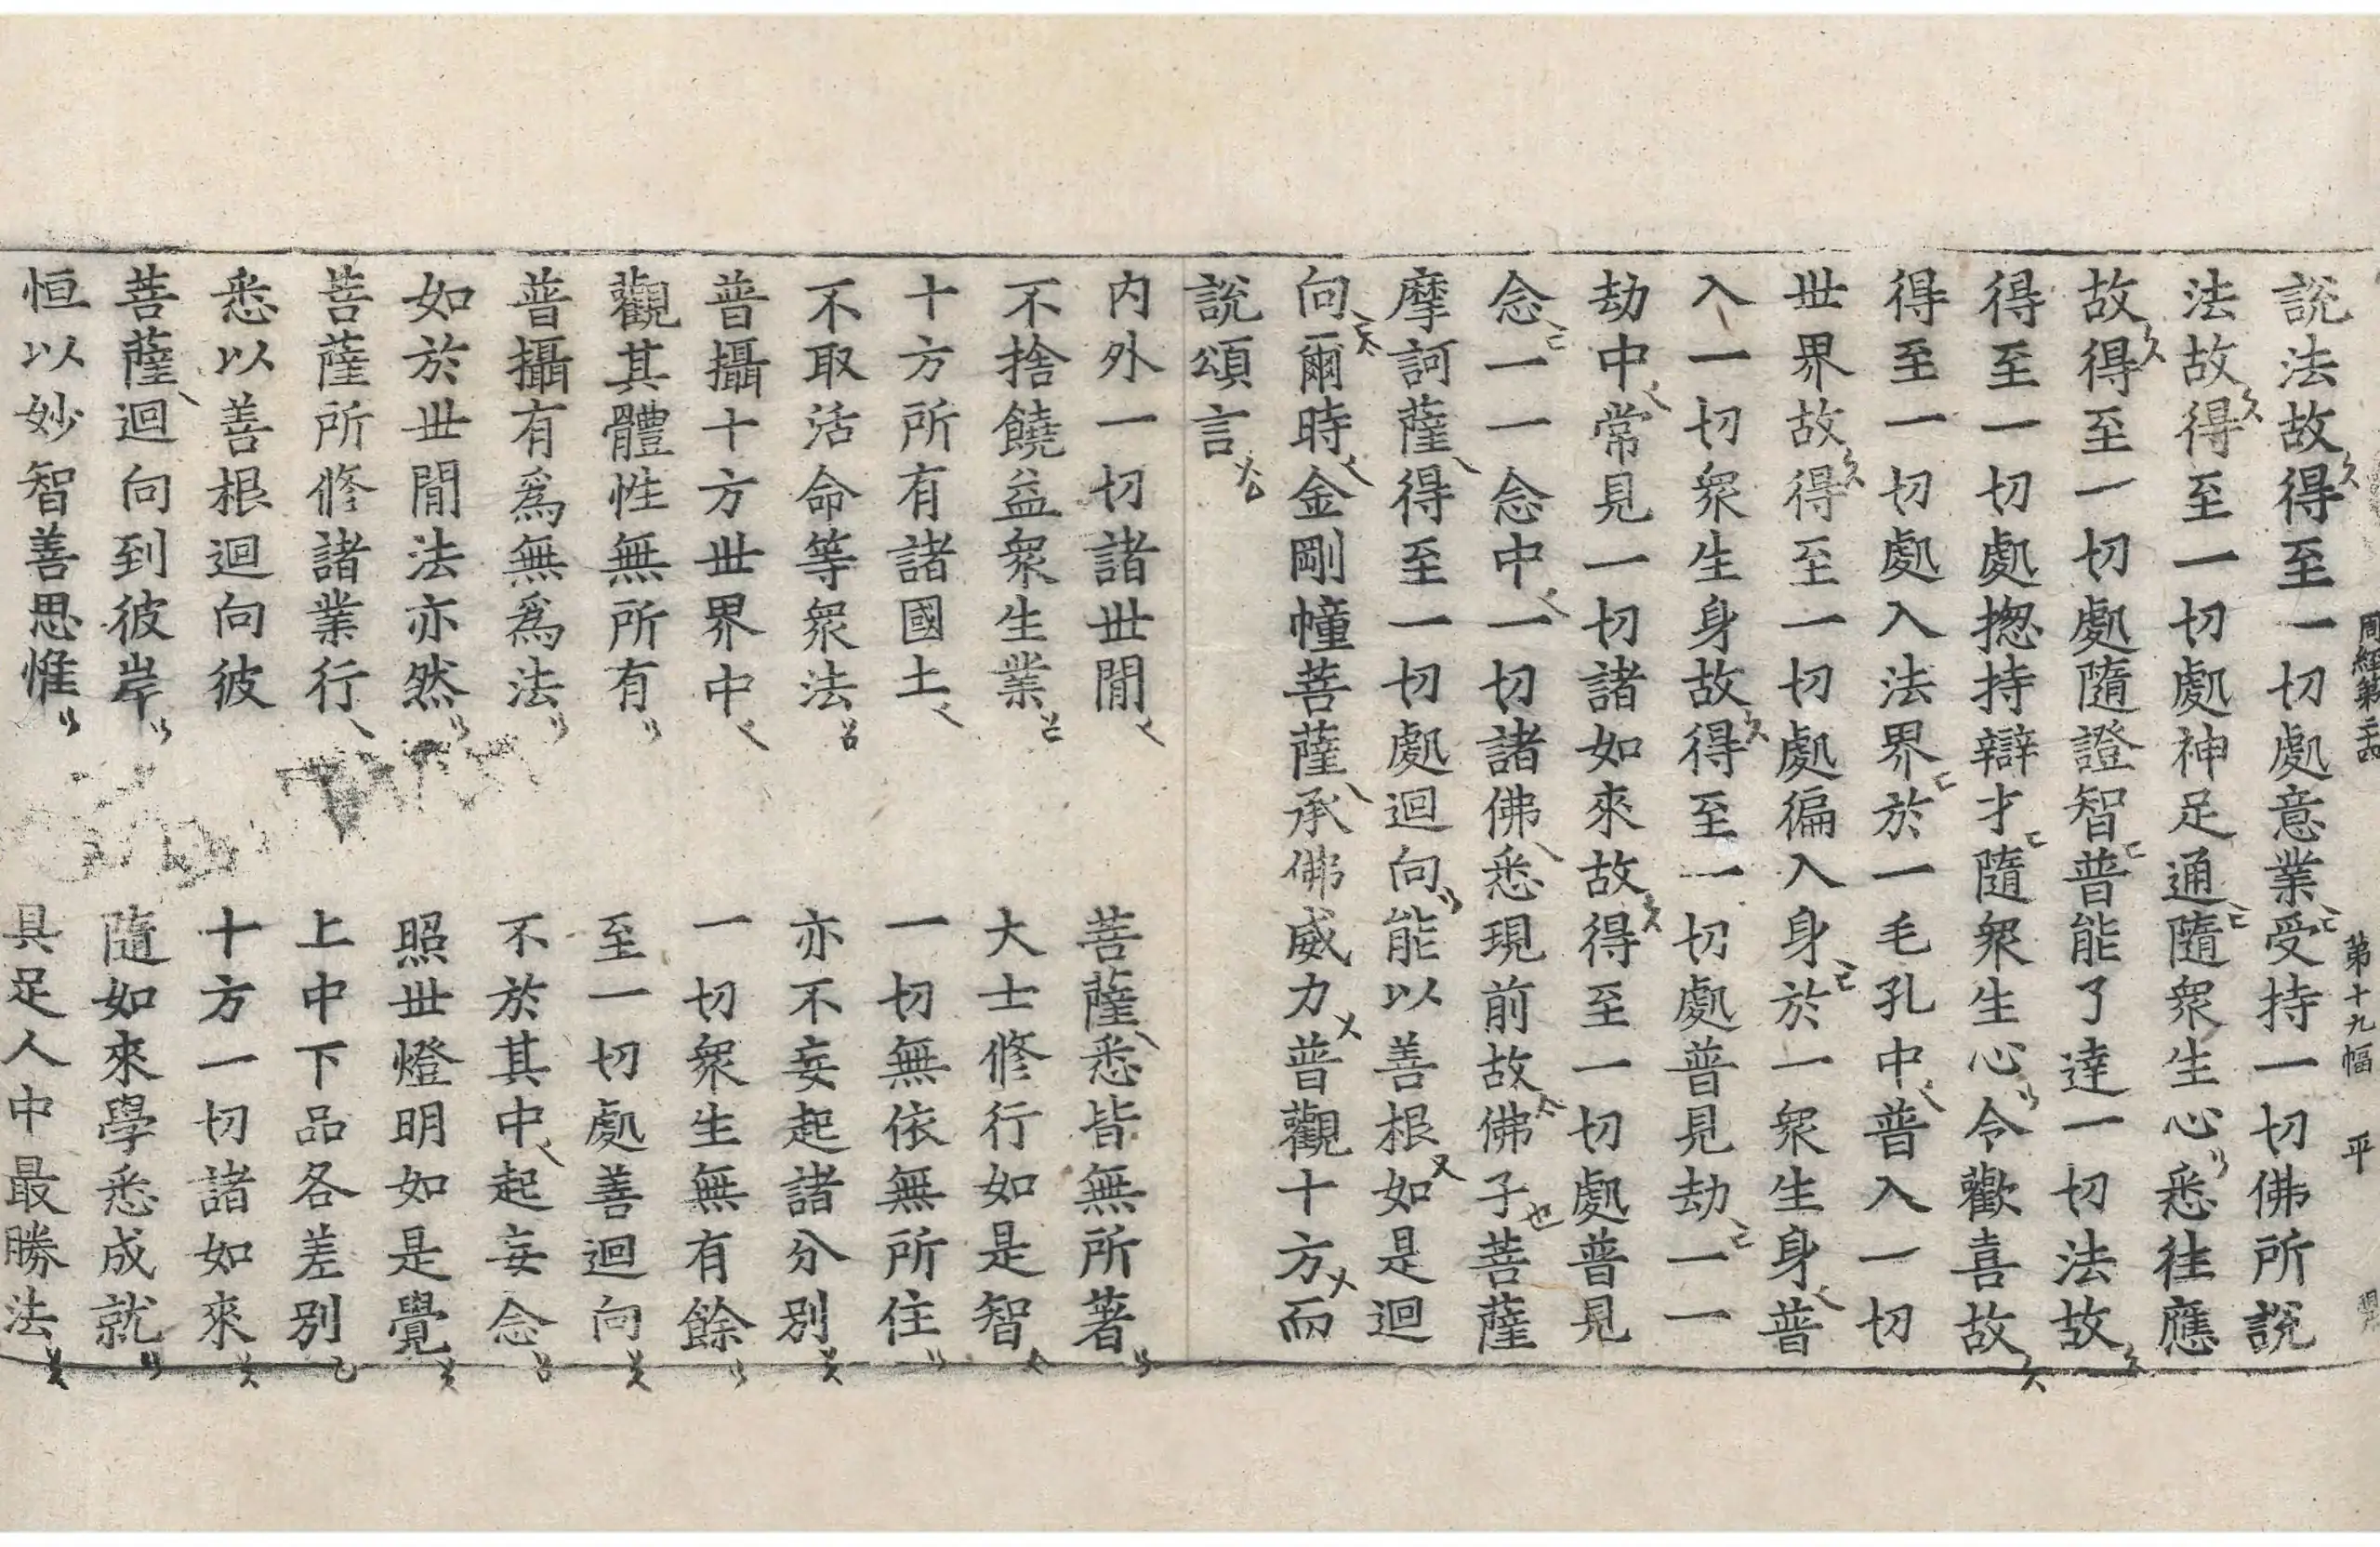 周經第二十四 第十九幅 平
說法故得至一切處意業受持一切佛所說
法故得至一切處神足通隨衆生心悉往應
故得至一切處隨證智普能了達一切法故
得至一切處揔持辯才隨衆生心令歡喜故
得至一切處入法界於一毛孔中普入一切
世界故得至一切處徧入身於一衆生身普
入一切衆生身故得至一切處普見劫一一
劫中常見一切諸如來故得至一切處普見
念一一念中一切諸佛悉現前故佛子菩薩
摩訶薩得至一切處迴向能以善根如是迴
向爾時金剛幢菩薩承佛威力普觀十方而
說頌言
内外一切諸世閒 菩薩悉皆無所著
不捨饒益衆生業 大士修行如是智
十方所有諸國土 一切無依無所住
不取活命等衆法 亦不妄起諸分別
普攝十方世界中 一切衆生無有餘
觀其體性無所有 至一切處善迴向
普攝有爲無爲法 不於其中起妄念
如於世閒法亦然 照世燈明如是覺
菩薩所修諸業行 上中下品各差別
悉以善根迴向彼 十方一切諸如來
菩薩迴向到彼岸 隨如來學悉成就
恒以妙智善思惟 具足人中最勝法